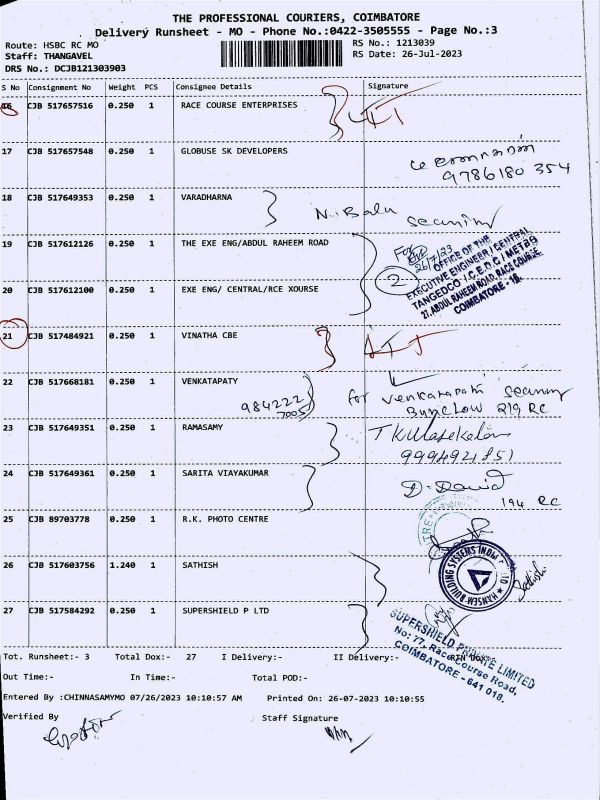 THE PROFESSIONAL COURIERS, COIMBATORE
Delivery Runsheet - MO - Phone No.:0422-3505555 - Page No.:3
Route: HSBC RC MO
RS No.: 1213039
Staff: THANGAVEL
RS Date: 26-Jul-2023
DRS No.: DCJB121303903
S No Consignment No Weight PCS Consignee Details Signature
16 CJB 517657516 0.250 1 RACE COURSE ENTERPRISES
17 CJB 517657548 0.250 1 GLOBUSE SK DEVELOPERS
9786180 354
18 CJB 517649353 0.250 1 VARADHARNA
N. Balu
19 CJB 517612126 0.250 1 THE EXE ENG/ABDUL RAHEEM ROAD
For
26/7/23
2
OFFICE OF THE
EXECUTIVE ENGINEER / CENTRAL
TANGEDCO / C.E.D.C / METRO
27, ABDUL RAHEEM ROAD, RACE COURSE,
COIMBATORE - 18.
20 CJB 517612100 0.250 1 EXE ENG/ CENTRAL/RCE XOURSE
21 CJB 517484921 0.250 1 VINATHA CBE
22 CJB 517668181 0.250 1 VENKATAPATY
984222
7005
for Venkatapathi
Bunclow 219 RC
23 CJB 517649351 0.250 1 RAMASAMY
T Kulasekelan
9994921851
24 CJB 517649361 0.250 1 SARITA VIAYAKUMAR
D. David
194 RC
25 CJB 89703778 0.250 1 R.K. PHOTO CENTRE
26 CJB 517603756 1.240 1 SATHISH
BUILDING SYSTEMS INDIA
Sathish
27 CJB 517584292 0.250 1 SUPERSHIELD P LTD
SUPERSHIELD PRIVATE LIMITED
No: 77, Race Course Road,
COIMBATORE - 641 018.
Tot. Runsheet:- 3 Total Dox:- 27 I Delivery:- II Delivery:-
Out Time:- In Time:- Total POD:-
Entered By :CHINNASAMYMO 07/26/2023 10:10:57 AM Printed On: 26-07-2023 10:10:55
Verified By Staff Signature